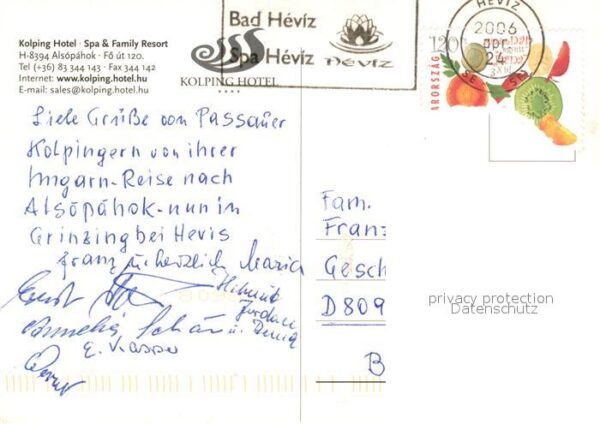 Kolping Hotel · Spa & Family Resort
H-8394 Alsópáhok · Fő út 120.
Tel (+36) 83 344 143 · Fax 344 142
Internet: www.kolping.hotel.hu
E-mail: sales@kolping.hotel.hu
KOLPING HOTEL
Bad Hévíz
Spa Hévíz
HÉVÍZ
HÉVÍZ
2006
24
120
Liebe Grüße von Passauer
Kolpingern von ihrer
Ungarn-Reise nach
Alsópáhok-nun in
Grinzing bei Hevis
Franz u. herzlich Maria
Helmut
E.
Fam.
Franz
Gesch
D809
B
privacy protection
Datenschutz